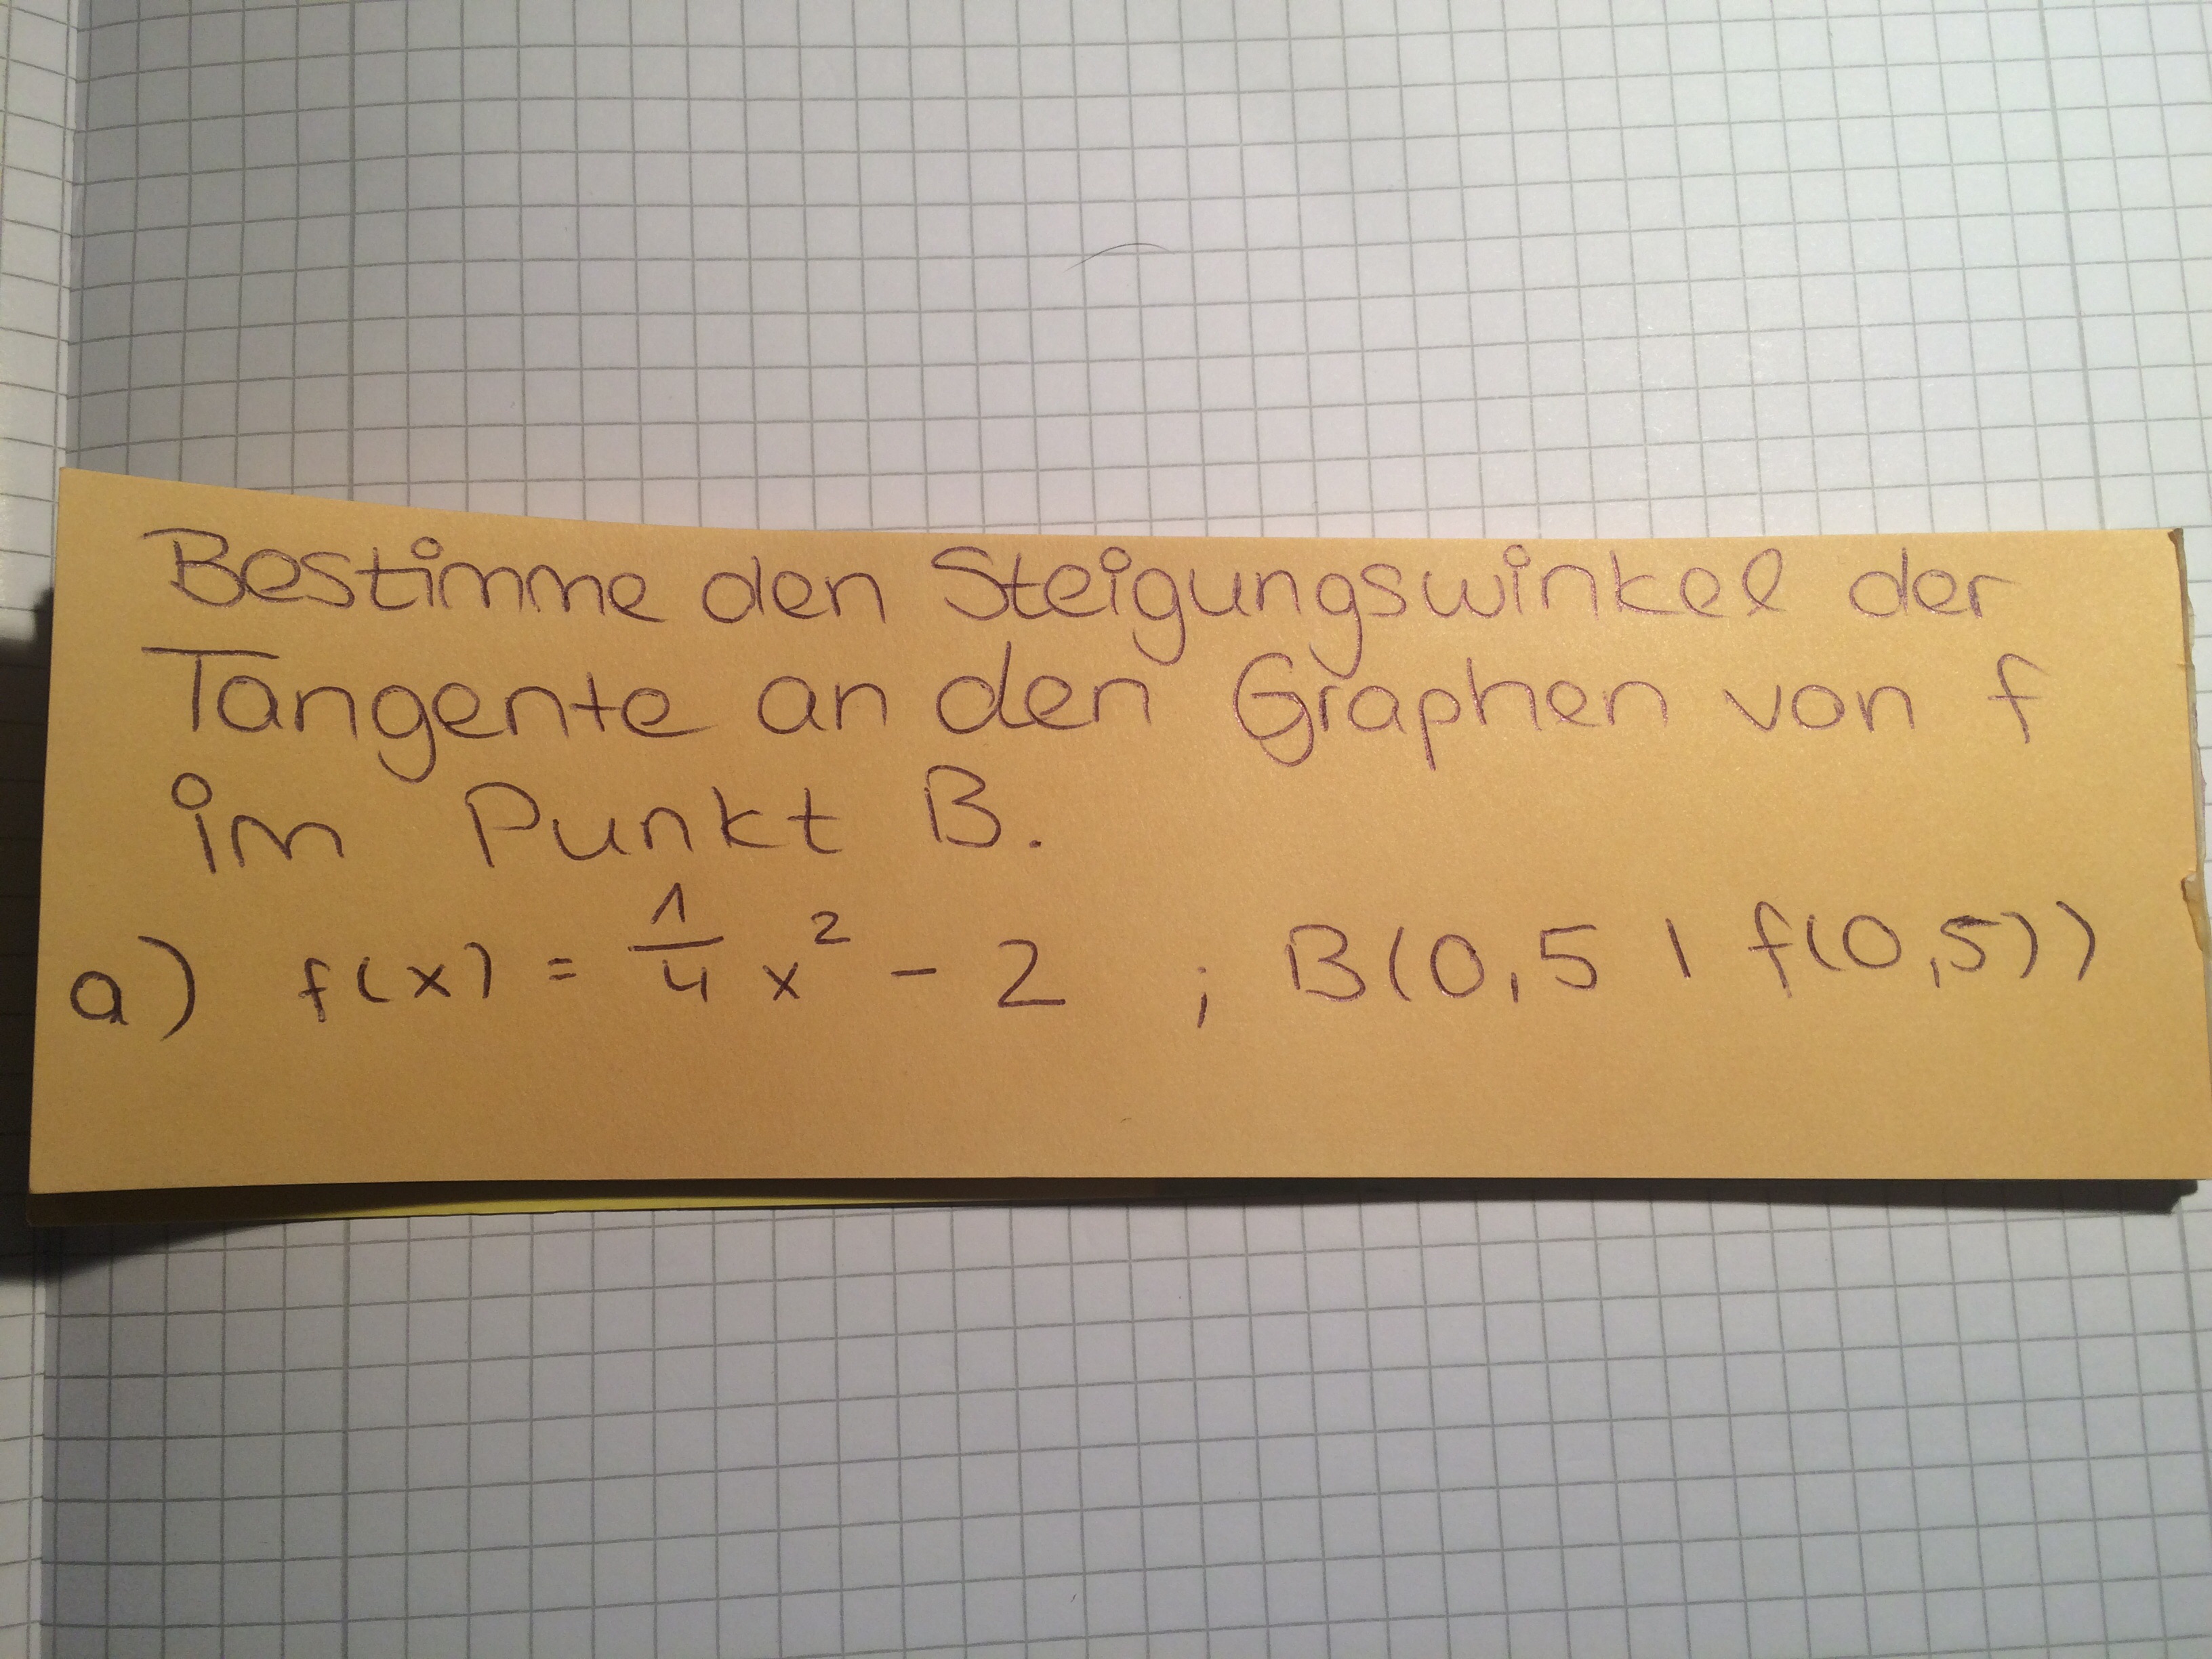 Bestimme den Steigungswinkel der
Tangente an den Graphen von f
im Punkt B.
a) f(x) = 1/4 x² - 2 ; B(0,5 | f(0,5))